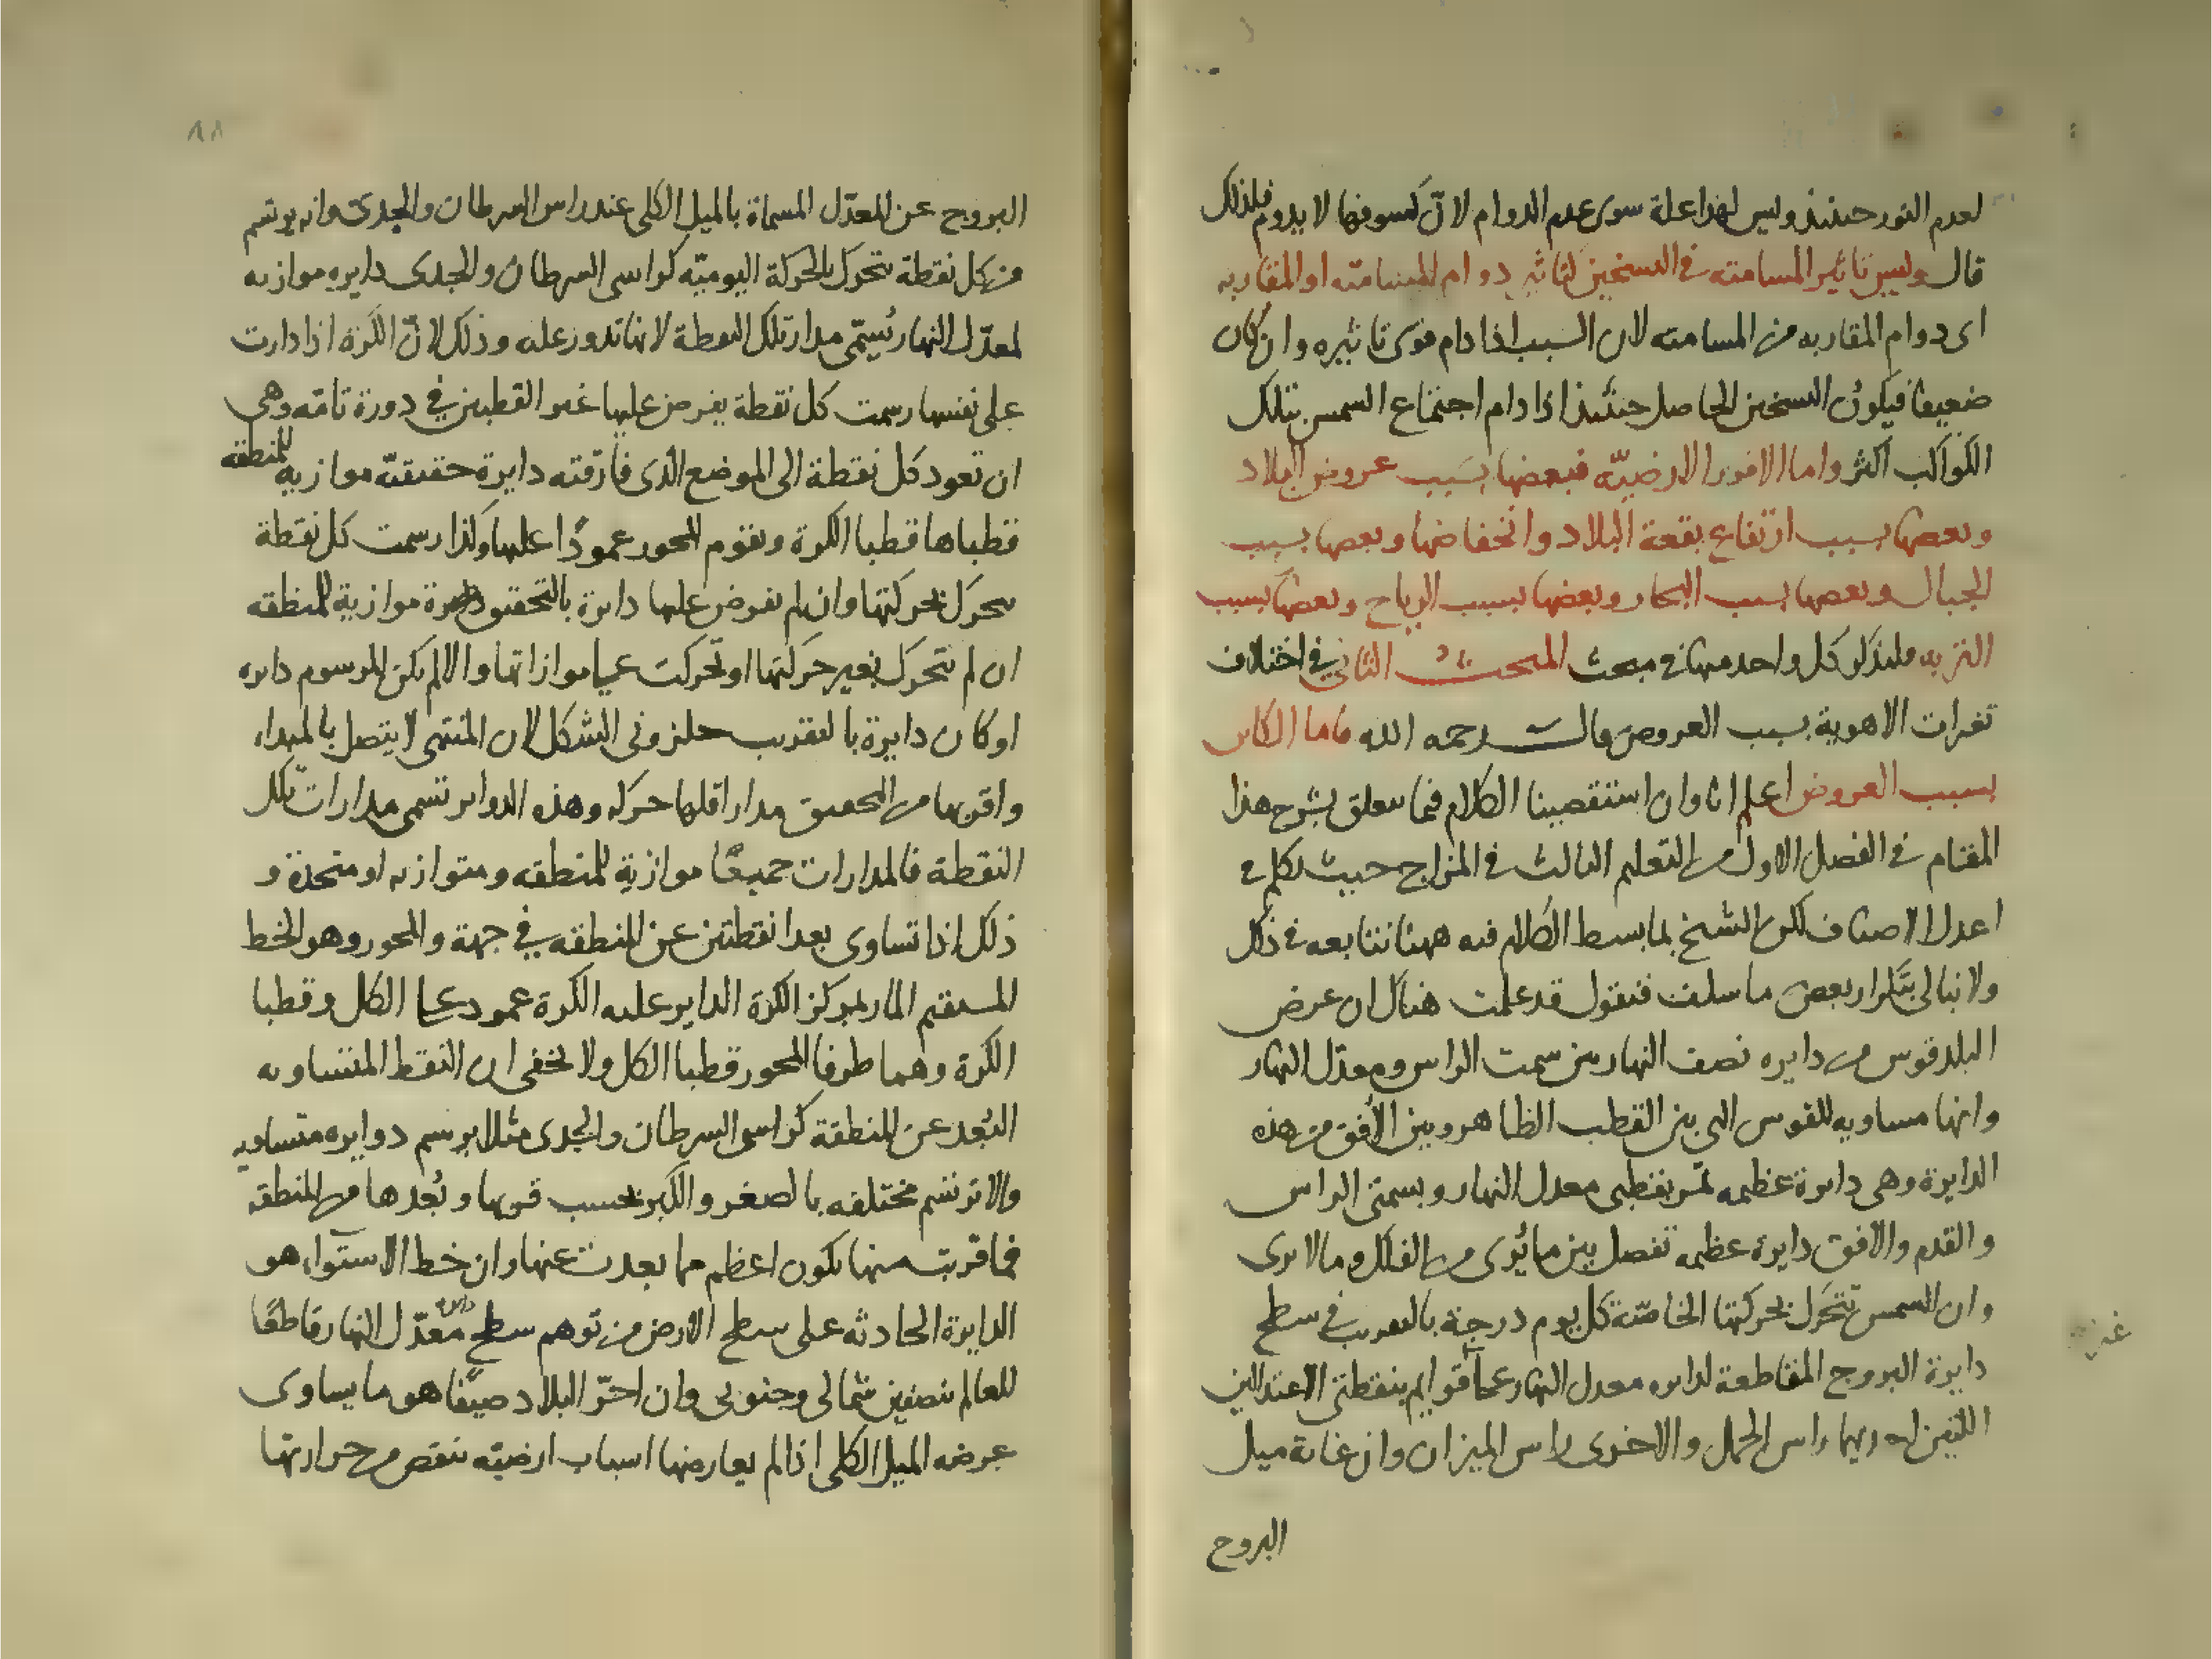 لعدم النور حينئذ وليس لهذا علة سوى عدم الدوام لانّ كسوفها لا يدوم فلذلك
قال وليس تاثير المسامتة في التسخين كتاثير دوام المسامتة او المقاربه
اى دوام المقاربه من المسامته لان السبب اذا دام قوى تاثيره وان كان
ضعيفا فيكون التسخين الحاصل حينئذ اذا دام اجتماع الشمس بتلك
الكواكب اكثر واما الامور الارضيّه فبعضها بسبب عروض البلاد
وبعضها بسبب ارتفاع بقعة البلاد وانخفاضها وبعضها بسبب
الجبال وبعضها بسبب البحار وبعضها بسبب الرياح وبعضها بسبب
التربه ولنذكر كل واحد منها في مبحث المبحث الثاني في اختلاف
تغيرات الاهوية بسبب العروض قال رحمه الله فاما الكاين
بسبب العروض اعلم انا وان استقصينا الكلام فيما يتعلق بشرح هذا
المقام في الفصل الاول من التعليم الثالث في المزاج حيث تكلم في
اعدل الاصناف لكن الشيخ لما بسط الكلام فيه ههنا نتابعه في ذلك
ولا نبالى بتكرار بعض ما سلف فنقول قد علمت هناك ان عرض
البلد قوس من دايره نصف النهار بين سمت الراس ومعدّل النهار
وانها مساويه للقوس التي بين القطب الظاهر وبين الأفق من هذه
الدايرة وهى دايرة عظيمه تمر بقطبى معدل النهار وبسمتى الراس
والقدم والافق دايرة عظيمه تفصل بين ما يُرى من الفلك وما لا يرى
وان الشمس تتحرك بحركتها الخاصّة كل يوم درجة بالتقريب في سطح
دايرة البروج المقاطعة لدايره معدل النهار على قوايم بنقطتى الاعتدالين
اللتين احديهما راس الحمل والاخرى راس الميزان وان غاية ميل
البروج
البروج عن المعدّل المسماة بالميل الكلى عند راس السرطان والجدى وانه يرتسم
من كل نقطة تتحرك بالحركة اليوميّه كراسى السرطان والجدى دايره موازيه
لمعدّل النهار يُسمّى مدار تلك النقطة لانها تدور عليه وذلك لانّ الكرة اذا دارت
على نفسها رسمت كل نقطة يفرض عليها غير القطبين في دورة تامّه وهى
ان تعود كل نقطة الى الموضع الذى فارقته دايرة حقيقيّة موازيه للمنطقه
قطباها قطبا الكرة ويقوم المحور عمودًا عليها وكذا رسمت كل نقطة
تتحرك بحركتها وان لم تفرض عليها دايرة بالتحقيق موازية للمنطقه
ان لم تتحرك بغير حركتها او تحركت على موازاتها والا لم يكن المرسوم دايره
او كان دايرة بالتقريب حلزونى الشكل لان المنتهى لا يتصل بالمبداء
واقربها من التحقيق مدارا اقلها حركه وهذه الدواير تسمى مدارات تلك
النقطة فالمدارات جميعًا موازية للمنطقه ومتوازيه او متحدة و
ذلك اذا تساوى بعدا نقطتين عن المنطقه في جهة والمحور وهو الخط
المستقيم المار بمركز الكرة الداير عليه الكرة عمود على الكل وقطبا
الكرة وهما طرفا المحور قطبا الكل ولا يخفى ان النقط المتساويه
البُعد عن المنطقة كراسى السرطان والجدى مثلا يرتسم دوايره متساويه
والا ترتسم مختلفه بالصغر والكبر بحسب قربها وبُعدها من المنطقه
فما قربت منها يكون اعظم مما بعدت عنها وان خط الاستواء هو
الدايرة الحادثه على سطح الارض من توهم سطح دايرة معدّل النهار قاطعًا
للعالم بنصفين شمالى وجنوبى وان احرّ البلاد صيفًا هو ما يساوى
عرضه الميل الكلى اذا لم يعارضها اسباب ارضيّه تنقص من حرارتها